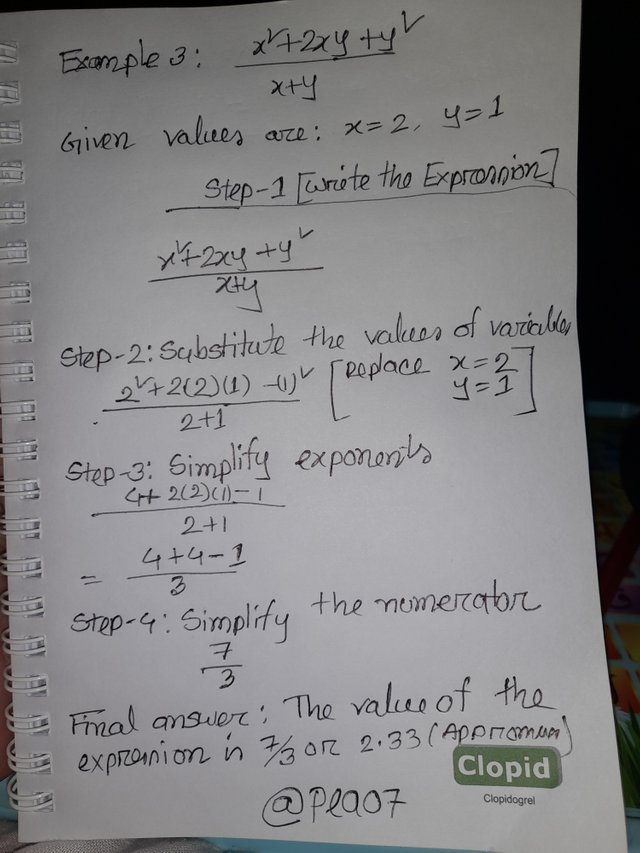 Example 3: x²+2xy+y²
x+y
Given values are: x=2, y=1
Step-1 [Write the Expression]
x²+2xy+y²
x+y
Step-2: Substitute the values of variables
2²+2(2)(1)-(1)² [Replace x=2
2+1 y=1]
Step-3: Simplify exponents
4+2(2)(1)-1
2+1
= 4+4-1
3
Step-4: Simplify the numerator
7
3
Final answer: The value of the
expression is 7/3 or 2.33 (
Clopid
Clopidogrel
@PEA07